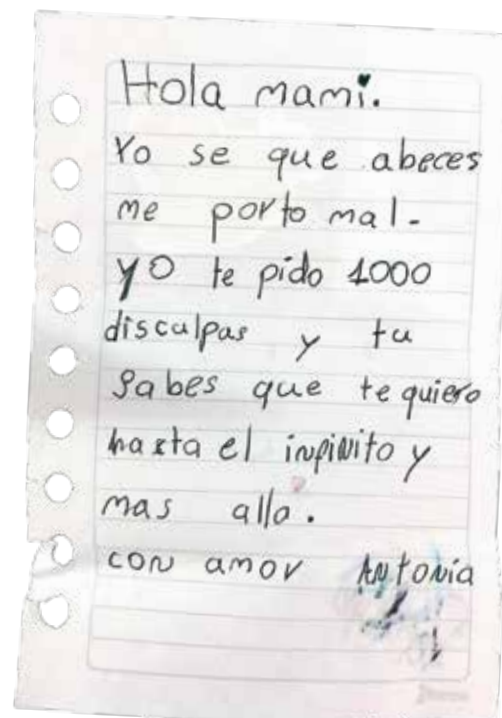 Hola mami.
Yo se que abeces
me porto mal.
yo te pido 1000
disculpas y tu
sabes que te quiero
hasta el inpinito y
mas alla.
con amor Antonia